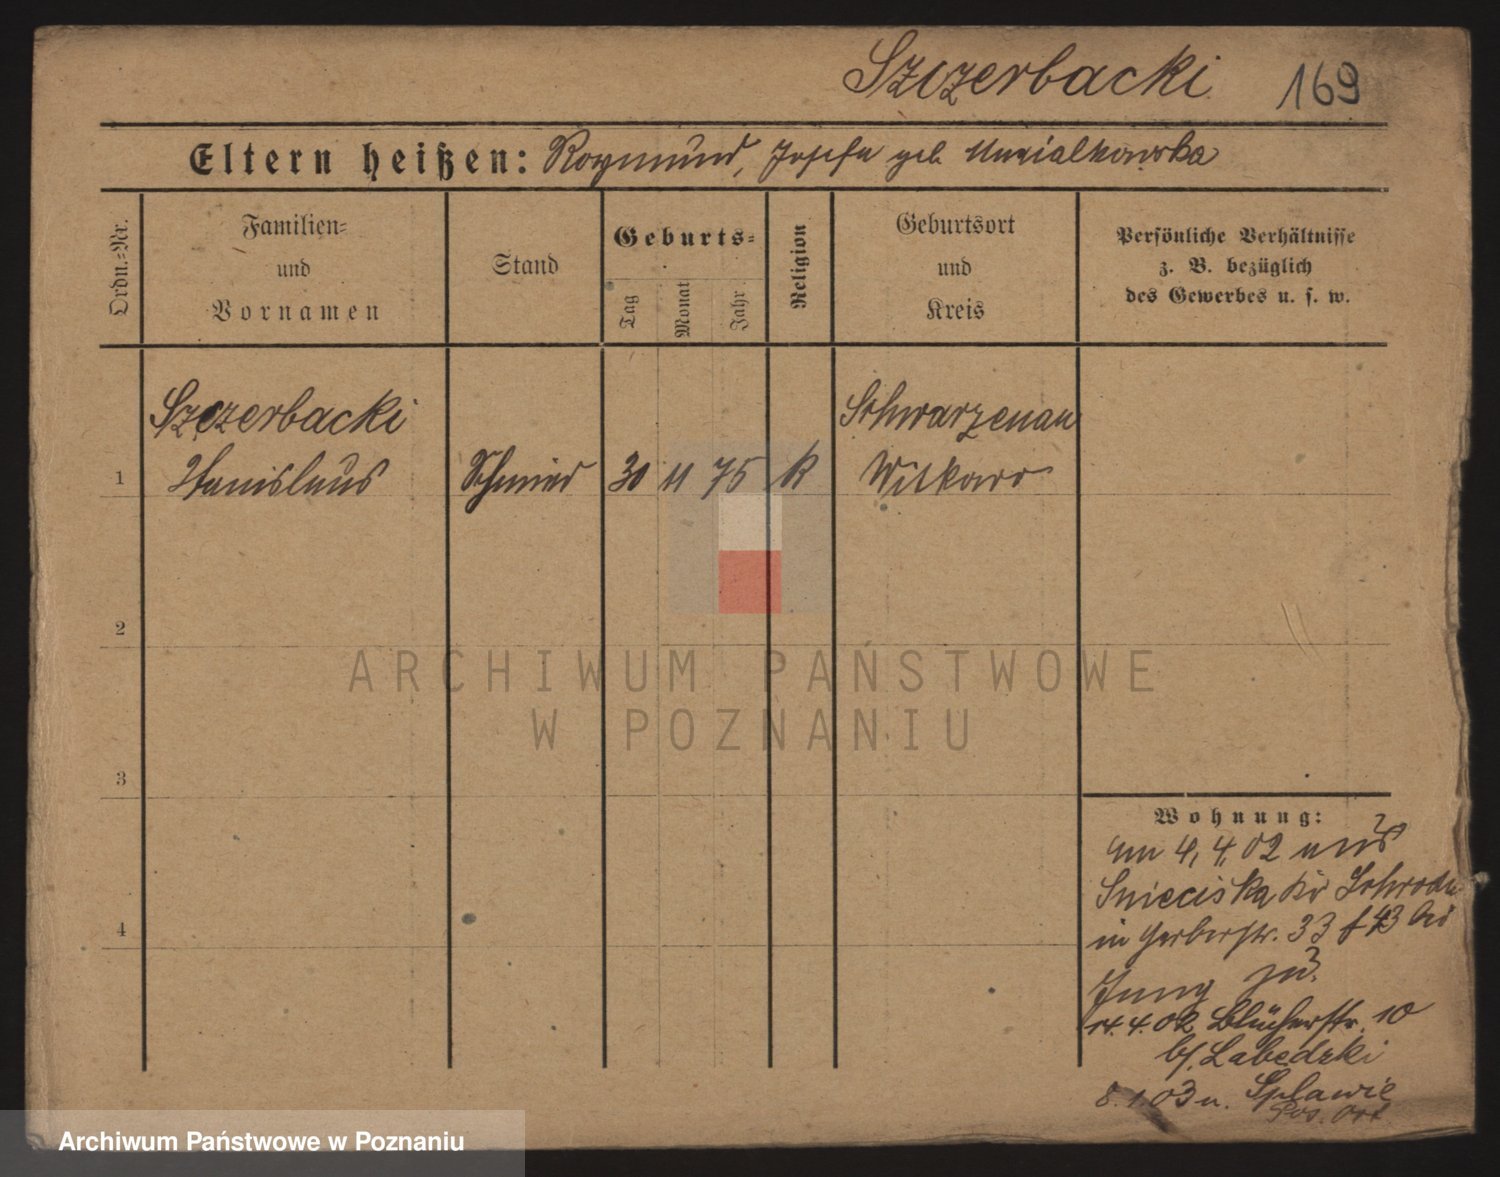 Szczerbacki 169
Eltern heißen: Roymund, Josefa geb.
Ordn.=Nr.
Familien=
und
Vornamen
Stand
Geburts=
Tag
Monat
Jahr
Religion
Geburtsort
und
Kreis
Persönliche Verhältnisse
z. B. bezüglich
des Gewerbes u. s. w.
Szczerbacki Schwarzenau
1 Stanislaus Schmied 30 11 75 K Witkowo
2
ARCHIWUM PAŃSTWOWE
W POZNANIU
3
4
Wohnung:
am 4.4.02 aus
Snieciska Kr
in Gerberstr. 33 bei
Jung zu.
4.02 Blücherstr. 10
b/. Labedzki
8.1.03 n. Splawie
Pos. Ort
Archiwum Państwowe w Poznaniu